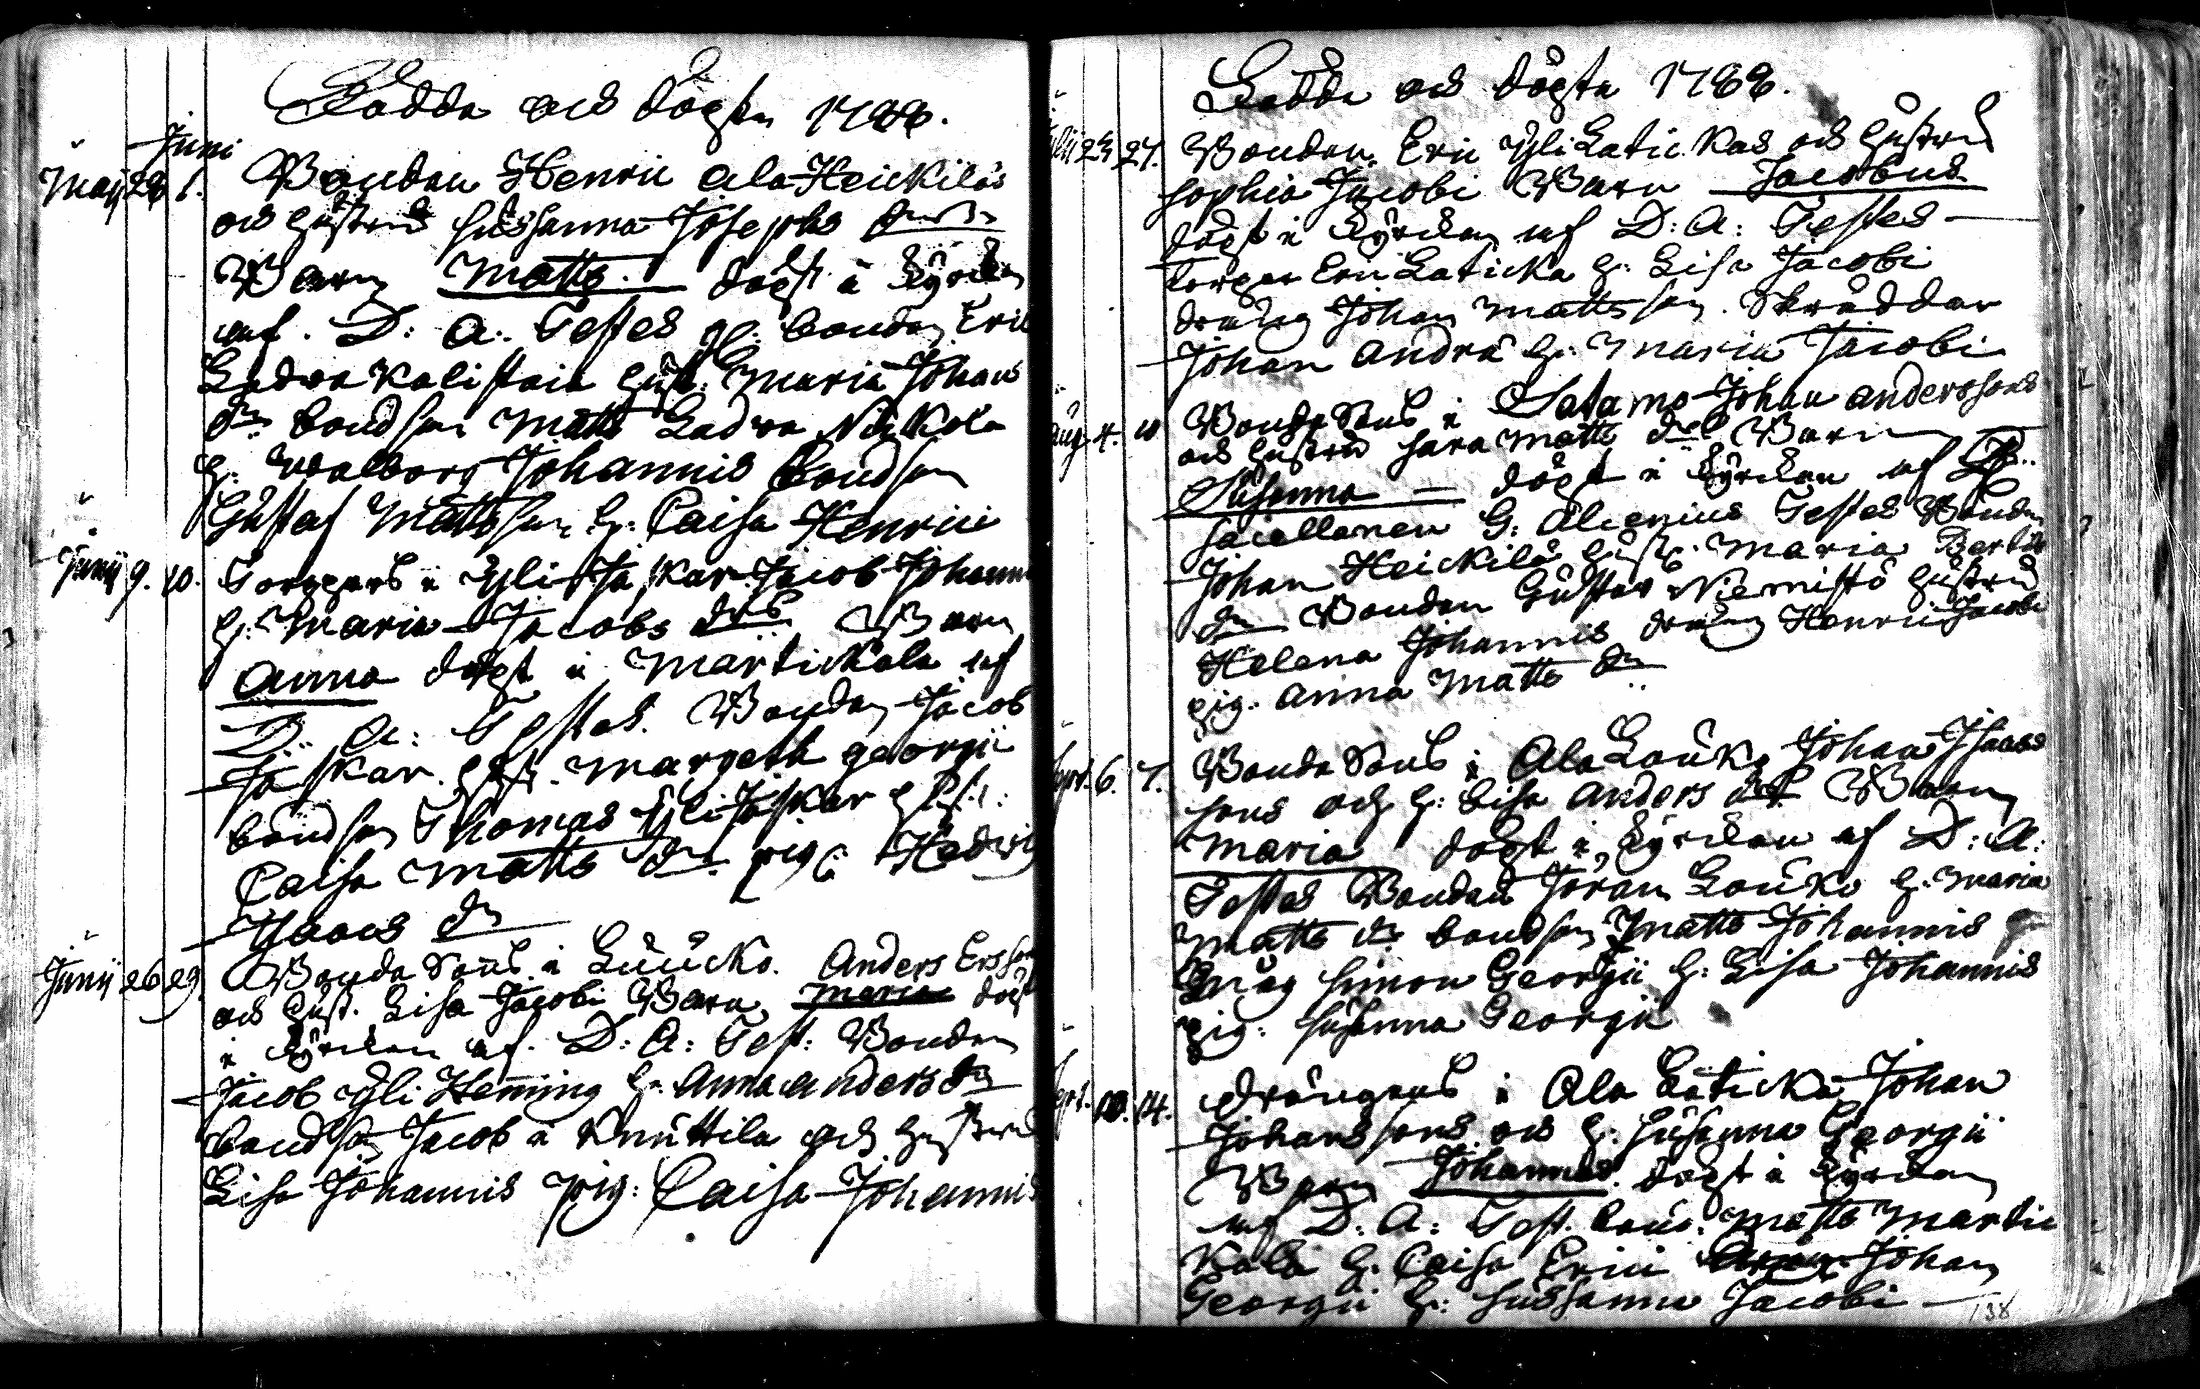 Födde och döpte 1788.
Juni
Maij 28 1. Bonden Henric Ala Heickiläs
och hustrus Sussanna Josephs dotters
Barn Matts. döpt i Kyrckan
af D: A. Testes bonden Eric
Ladva Kalistaia hust. Maria Johans
dr bondson Matts Ladva Nickola
h. Walborg Johannis bondson
Gustaf Mattsson h. Caisa Henrici
Junij 9. 10. Torppars i Yli Jäskar Jacob Johanns
h. Maria Jacobs drs Barn
Anna döpt i Martickala af
D: A: Testes. Bonden Jacob
Jäskar hust. Margeth Georgii
bondson Thomas Yli Jäskar hust:
Caisa Matts dr. pig: Hedvig
Isaacs dr
Junij 26 29. Bonda Sons i Luucko. Anders Ersson
och hust. Lisa Jacobi Barn Maria döpt
i Kyrckan af. D: A: Test: Bonden
Jacob Yli Hemming h. Anna Anders dr
bondson Jacob i Knuttila och hustru
Lisa Johannis pig: Caisa Johannis
Födde och döpte 1788.
Julii 24 27. Bonden Eric Yli Latickas och hustrus
Sophia Jacobi Barn Jacobus
döpt i Kyrckan af D: A: Testes
torpar Eric Laticka h. Lisa Jacobi
dräng Johan Mattsson. Skräddar
Johan Andrä h. Maria Jacobi
Aug 4. 10 Bonda Sons i Satamo Johan Anderssons
och hustru Sara Matts drs Barn
Susanna döpt i Kyrckan af
Sacellanen G: Alcenius Testes Bonden
Johan Heickilä hust. Maria Bertils
dr Bonden Gustav Niemistö hustru
Helena Johannis dräng Henric Jacobi
pig. Anna Matts dr
Sept. 6. 7. Bonda Sons i Ala Louko Johan Isaacs
sons och h: Lisa Anders drs Barn
Maria döpt i Kyrckan af D: A:
Testes Bonden Jöran Louko h. Maria
Matts dr bondson Matts Johannis
Måg Simon Georgii h: Lisa Johannis
pig: Susanna Georgii
Sept. 10. 14. Drängens i Ala Laticka Johan
Johanssons och h. Susanna Georgii
Barn Johannes. döpt i Kyrckan
af D: A: Test. bond. Matts Martic
Kala h. Caisa Erici Johan
Georgii h: Sussanna Jacobi
138